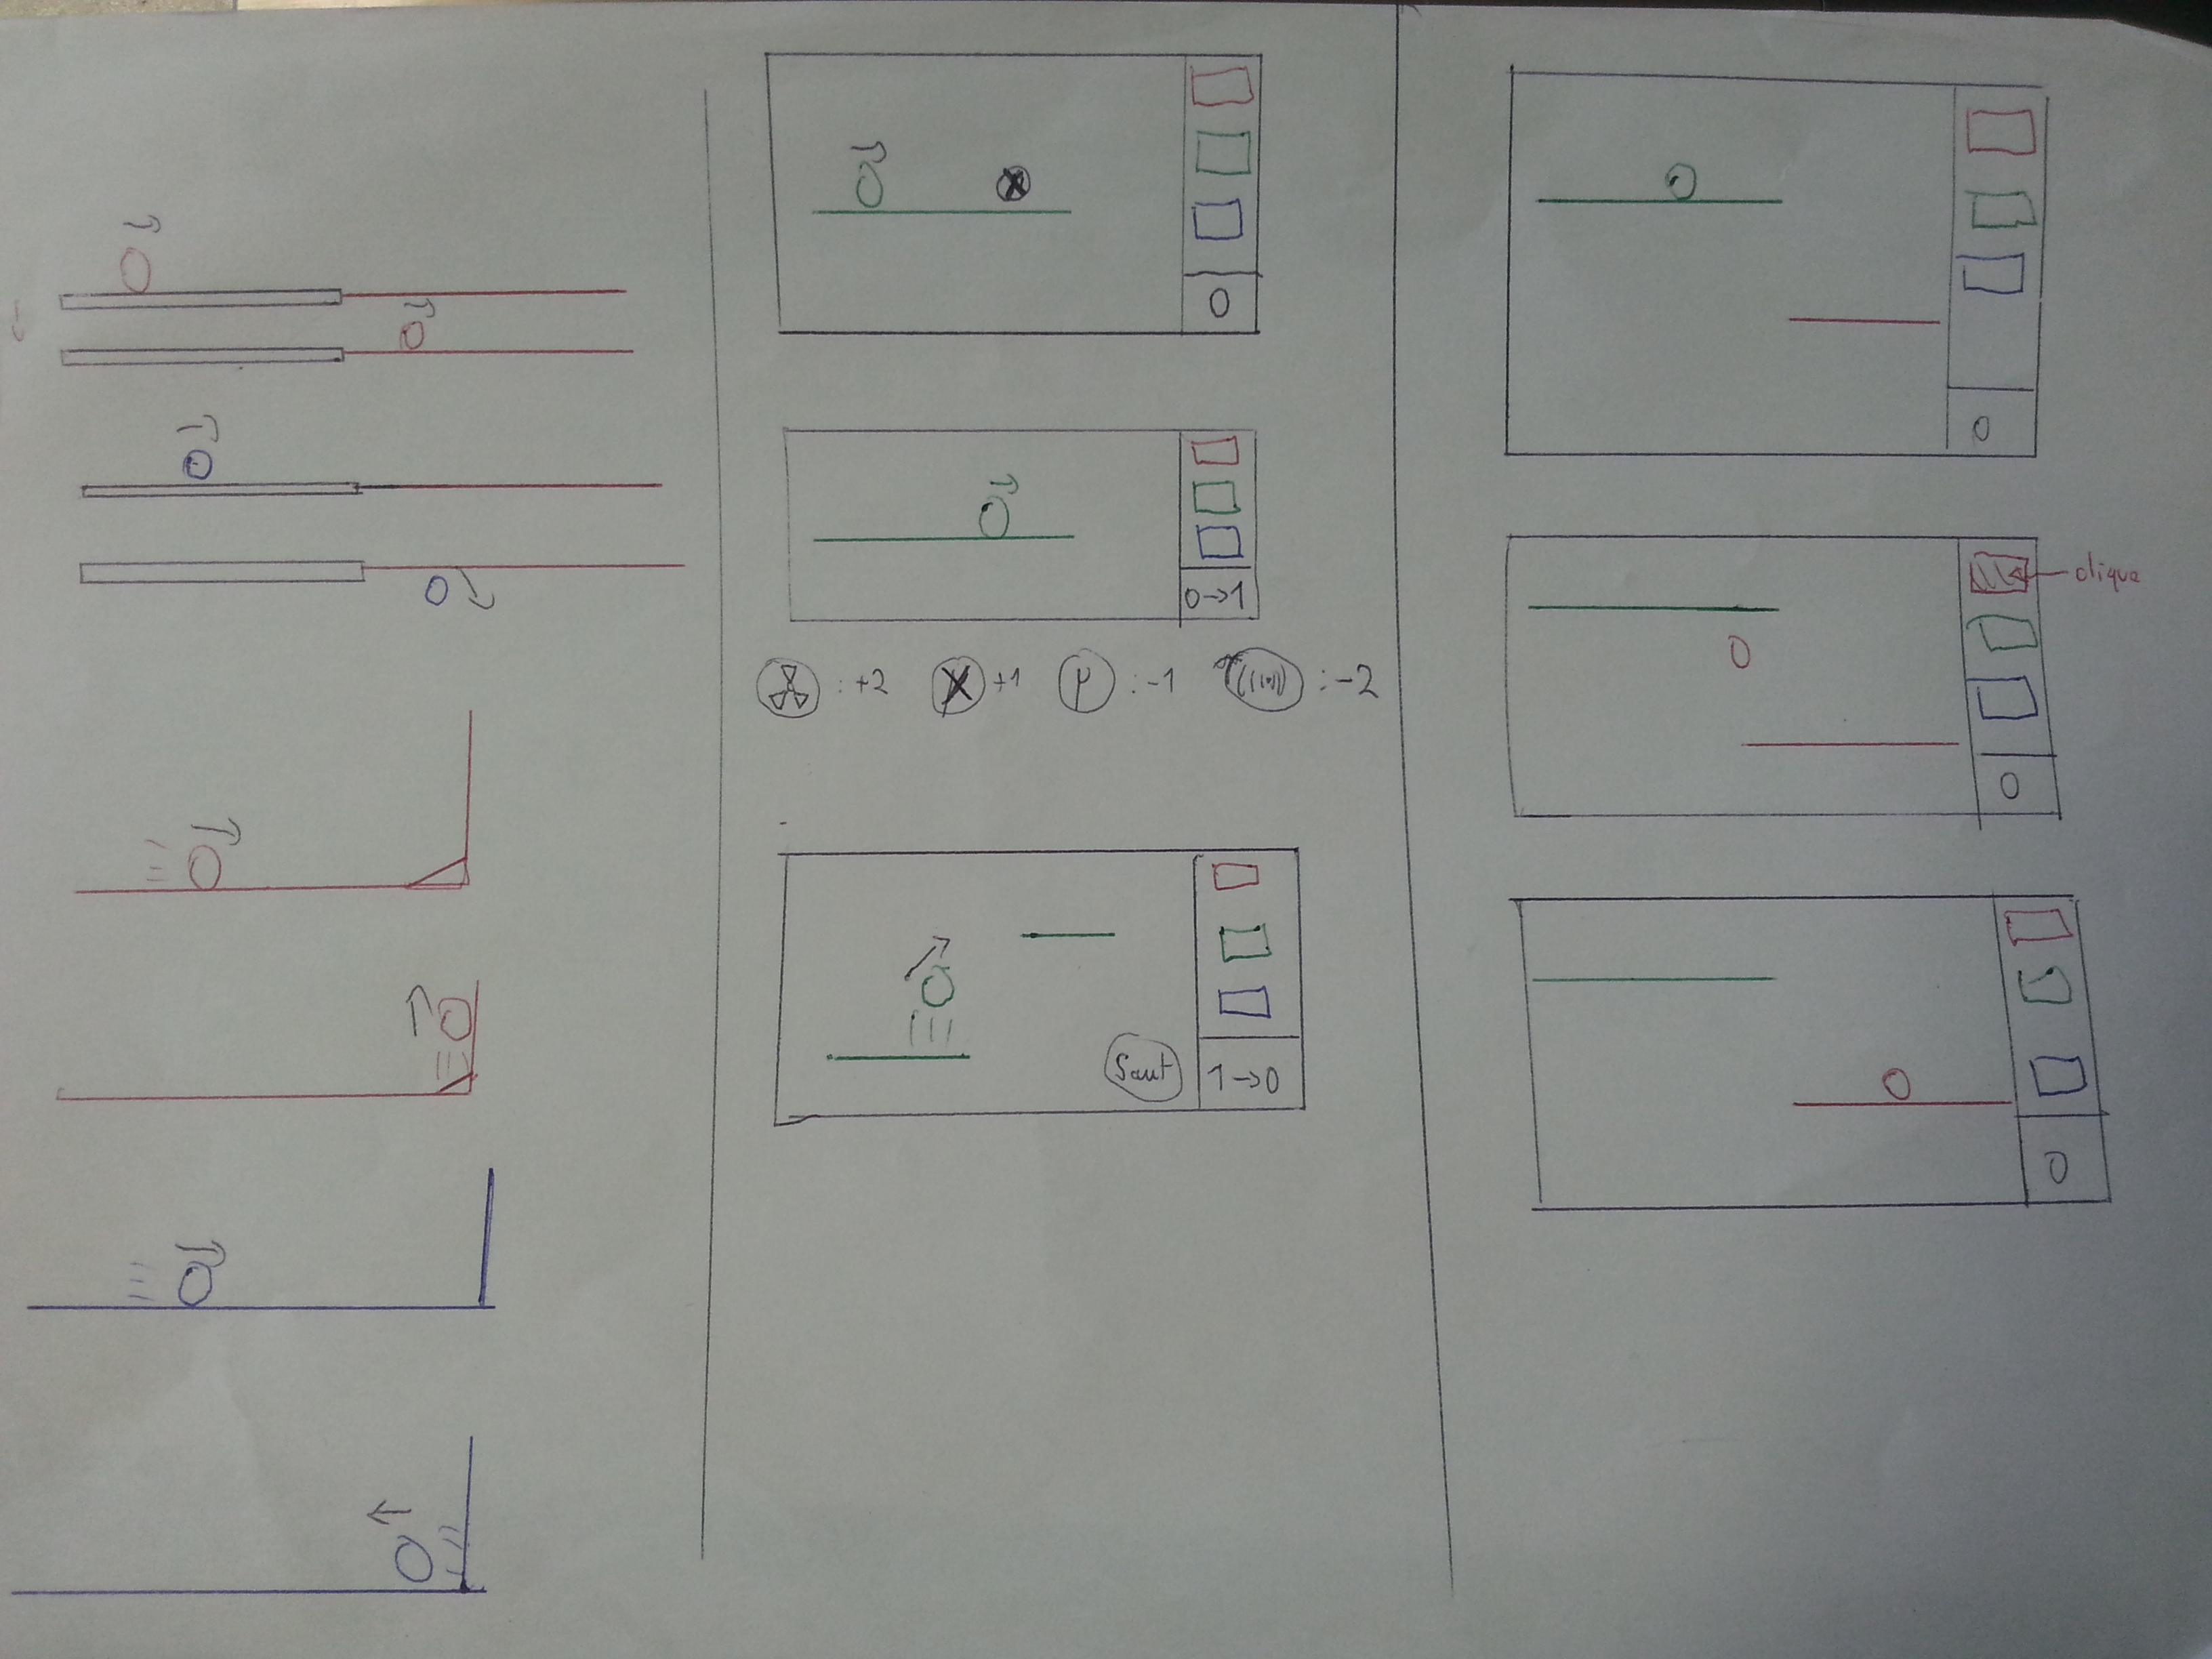 0
0→1
: +2
X +1
P : -1
: -2
Saut
1→0
0
clique
0
0